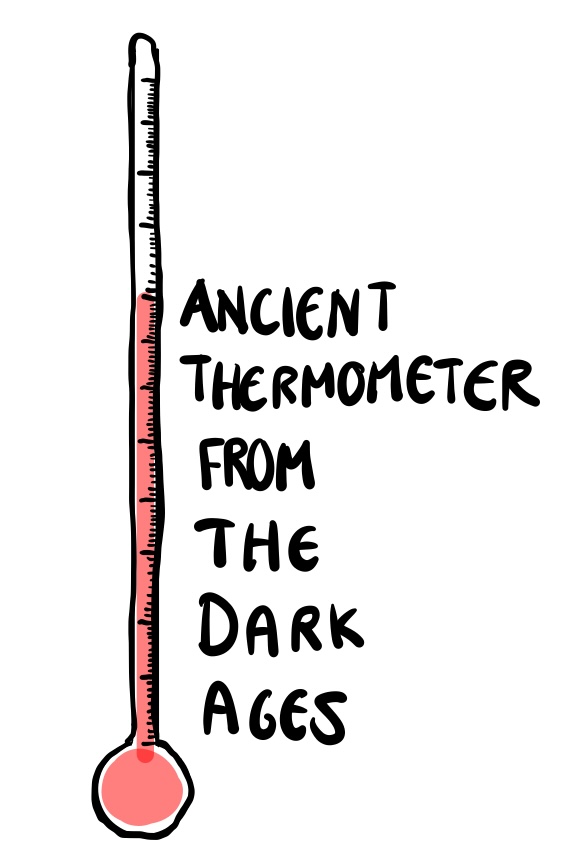 ANCIENT
THERMOMETER
FROM
THE
DARK
AGES